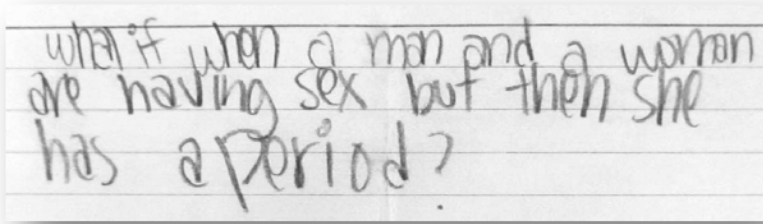 what if when a man and a woman
are having sex but then she
has a period?